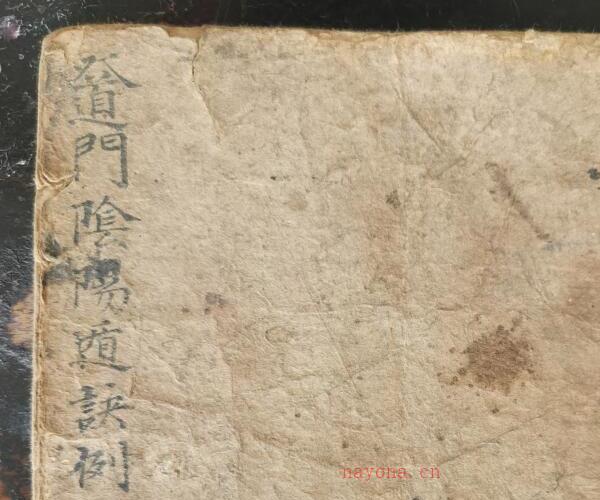 門陰陽遁訣例
nayona.cn